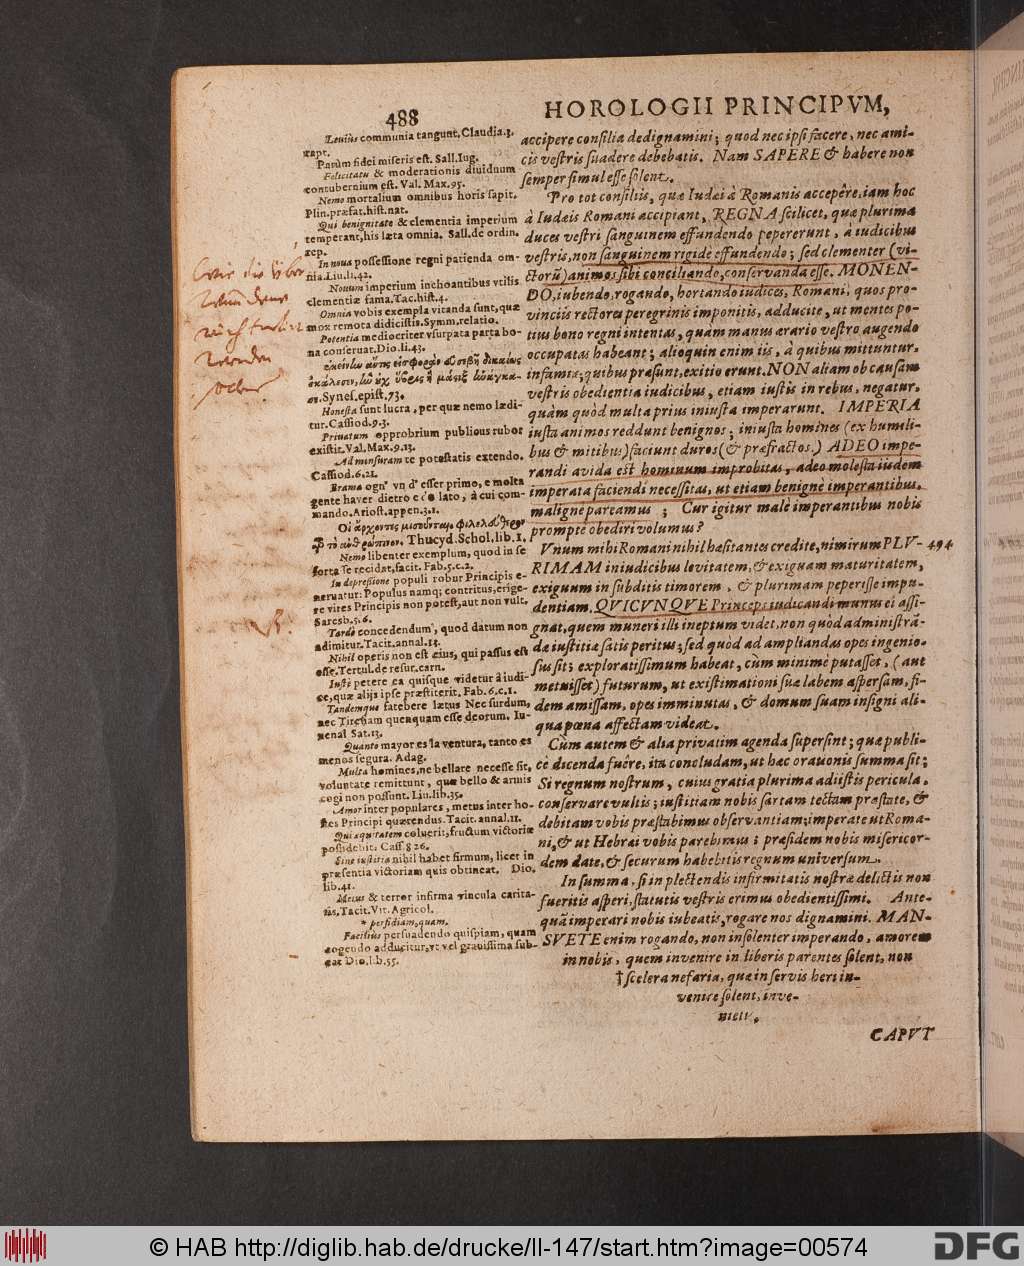 488
HOROLOGII PRINCIPVM,
Leviùs communia tangunt, Claudia. 3.
rapt.
Parùm fidei miseris est. Sall. Iug.
Felicitatis & moderationis dividuum
contubernium est. Val. Max. 95.
Nemo mortalium omnibus horis sapit.
Plin. præfat. hist. nat.
Qui benignitate & clementia imperium
temperant, his læta omnia. Sall. de ordin.
rep.
In noua possessione regni patienda om-
nia. Liu. li. 42.
Nouum imperium inchoantibus vtilis
clementiæ fama. Tac. hist. 4.
Omnia vobis exempla vitanda sunt, quæ
mox remota didicistis. Symm. relatio.
Potentia mediocriter vsurpata parta bo-
na conseruat. Dio. li. 43.
Synes. epist. 73.
Honesta sunt lucra, per quæ nemo lædi-
tur. Cassiod. 9.3.
Priuatum opprobrium publicus rubor
existit. Val. Max. 9.13.
Ad mensuram te potestatis extendo.
Cassiod. 6.21.
Brama ogn' vn d' esser primo, e molta
gente haver dietro e co lato, à cui com-
mando. Ariost. appen. 3.1.
Thucyd. Schol. lib. 1.
Nemo libenter exemplum, quod in se
forta se recidat, facit. Fab. 5. c. 2.
In depressione populi robur Principis e-
neruatur: Populus namq; contritus, erige-
re vires Principis non potest, aut non vult.
Saresb. 5.6.
Tardè concedendum, quod datum non
adimitur. Tacit. annal. 13.
Nihil operis non est eius, qui passus est
esse. Tertul. de resur. carn.
Iusti petere ea quisque videtur à iudi-
ce, quæ alijs ipse præstiterit. Fab. 6. c. 1.
Tandemque fatebere lætus Nec surdum,
nec Tiresiam quenquam esse deorum. Iu-
uenal Sat. 13.
Quanto mayor es la ventura, tanto es
menos segura. Adag.
Multa homines, ne bellare necesse sit,
voluntate remittunt, quæ bello & armis
cogi non possunt. Liu. lib. 35.
Amor inter populares, metus inter ho-
stes Principi quærendus. Tacit. annal. 11.
Qui æquitatem coluerit, fructum victoriæ
possidebit. Cass. 8 26.
Sine iustitia nihil habet firmum, licet in
præsentia victoriam quis obtineat. Dio.
lib. 41.
Metus & terror infirma vincula carita-
tis, Tacit. Vit. Agricol.
* perfidiam, quam.
Facilius persuadendo quispiam, quam
cogendo adducitur, vt vel grauissima sub-
eat Dio. lib. 55.
accipere consilia dedignamini; quod nec ipsi facere, nec ami-
cis vestris suadere debebatis. Nam SAPERE & habere non
semper simul esse solent.
Pro tot consiliis, quæ Iudæi à Romanis accepêre, iam hoc
à Iudæis Romani accipiant, REGNA scilicet, quæ plurima
duces vestri sanguinem effundendo pepererunt, à iudicibus
vestris, non sanguinem rigidè effundendo; sed clementer (vi-
ctorũ) animos sibi conciliando, conservanda esse. MONEN-
DO, iubendo, rogando, hortando iudices, Romani, quos pro-
vinciis rectores peregrinis imponitis, adducite, ut mentes po-
tius bono regni intentas, quàm manus ærario vestro augendo
occupatas habeant; alioquin enim iis, à quibus mittuntur,
infamiæ; quibus præsunt, exitio erunt. NON aliam ob causam
vestris obedientia iudicibus, etiam iustis in rebus, negatur,
quàm quòd multa prius iniusta imperarunt. IMPERIA
iusta animos reddunt benignos; iniusta homines (ex humili-
bus & mitibus) faciunt duros (& præfractos.) ADEO impe-
randi avida est hominum improbitas, adeo molesta iisdem
imperata faciendi necessitas, ut etiam benignè imperantibus,
malignè pareamus; Cur igitur malè imperantibus nobis
promptè obediri volumus?
Vnum mihi Romani nihil hæsitantes credite, nimirum PLV-
494
RIMAM in iudicibus levitatem, & exiguam maturitatem,
exiguum in subditis timorem, & plurimam peperisse impu-
dentiam. QVICVNQVE Princeps iudicandi munus ei assi-
gnat, quem muneri illi ineptum videt, non quòd administrā-
dæ iustitiæ satis peritus; sed quòd ad ampliandas opes ingenio-
sus sit; exploratissimum habeat, cùm minimè putasset, (aut
metuisset) futurum, ut existimationi suæ labem aspersam, fi-
dem amissam, opes imminutas, & domum suam insigni ali-
qua pœna affectam videat.
Cùm autem & alia privatim agenda supersint; quæ publi-
cè dicenda fuêre, ita concludam, ut hæc orationis summa sit;
Si regnum nostrum, cuius gratia plurima adiistis pericula,
conservare vultis; iustitiam nobis sartam tectam præstate, &
debitam vobis præstabimus observantiam; imperate ut Roma-
ni, & ut Hebræi vobis parebimus; præsidem nobis misericor-
dem date, & securum habebitis regnum universum.
In summa, si in plectendis infirmitatis nostræ delictis non
fueritis asperi, statutis vestris erimus obedientissimi. Ante-
quā imperari nobis iubeatis, rogare nos dignamini. MAN-
SVETE enim rogando, non insolenter imperando, amorem
in nobis, quem invenire in liberis parentes solent, non
† scelera nefaria, quæ in servis heri in-
venire solent, inve-
nietis.
CAPVT
© HAB http://diglib.hab.de/drucke/ll-147/start.htm?image=00574
DFG